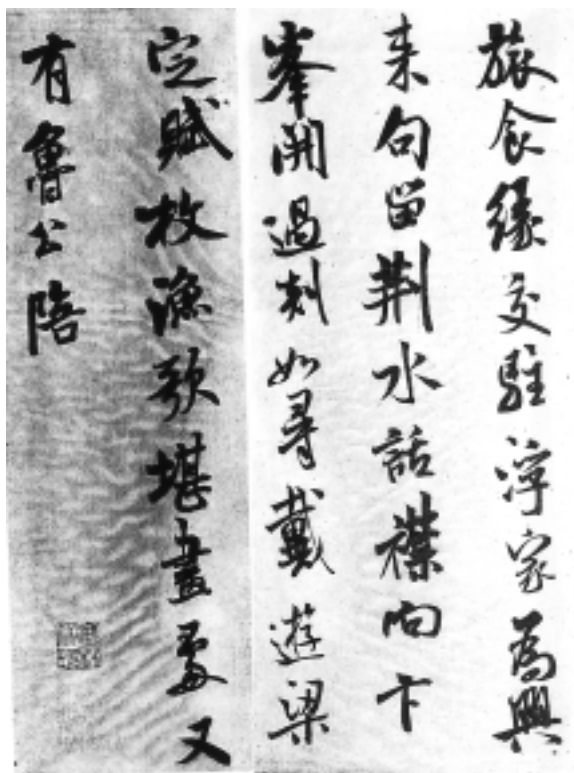 旅食緣交駐浮家為興
来句留荆水話襟向卞
峯開過剡如尋戴遊梁
定賦枚漁歌堪畫處又
有魯公陪